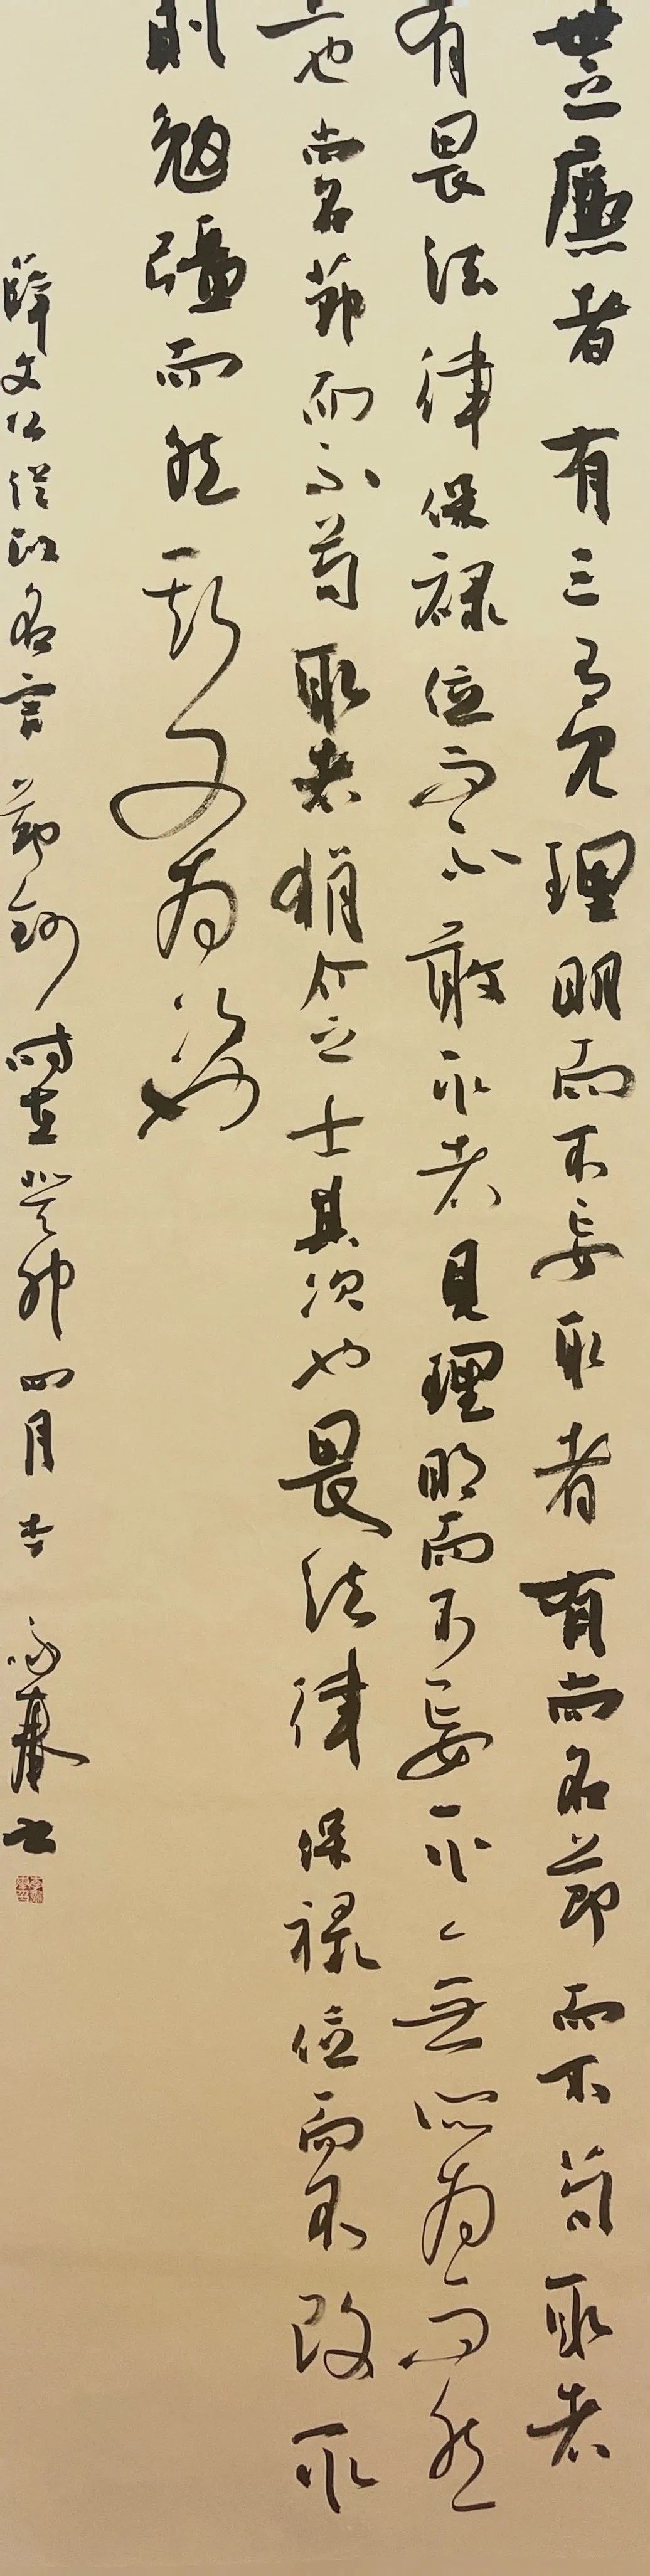 世之廉者有三有見理明而不妄取者有尚名節而不苟取者
有畏法律保祿位而不敢取者見理明而不妄取無所為而然
上也尚名節而不苟取者狷介之士其次也畏法律保祿位而不敢取
則勉強而然斯又為次也
薛文公從政名言節鈔時在癸卯四月李書